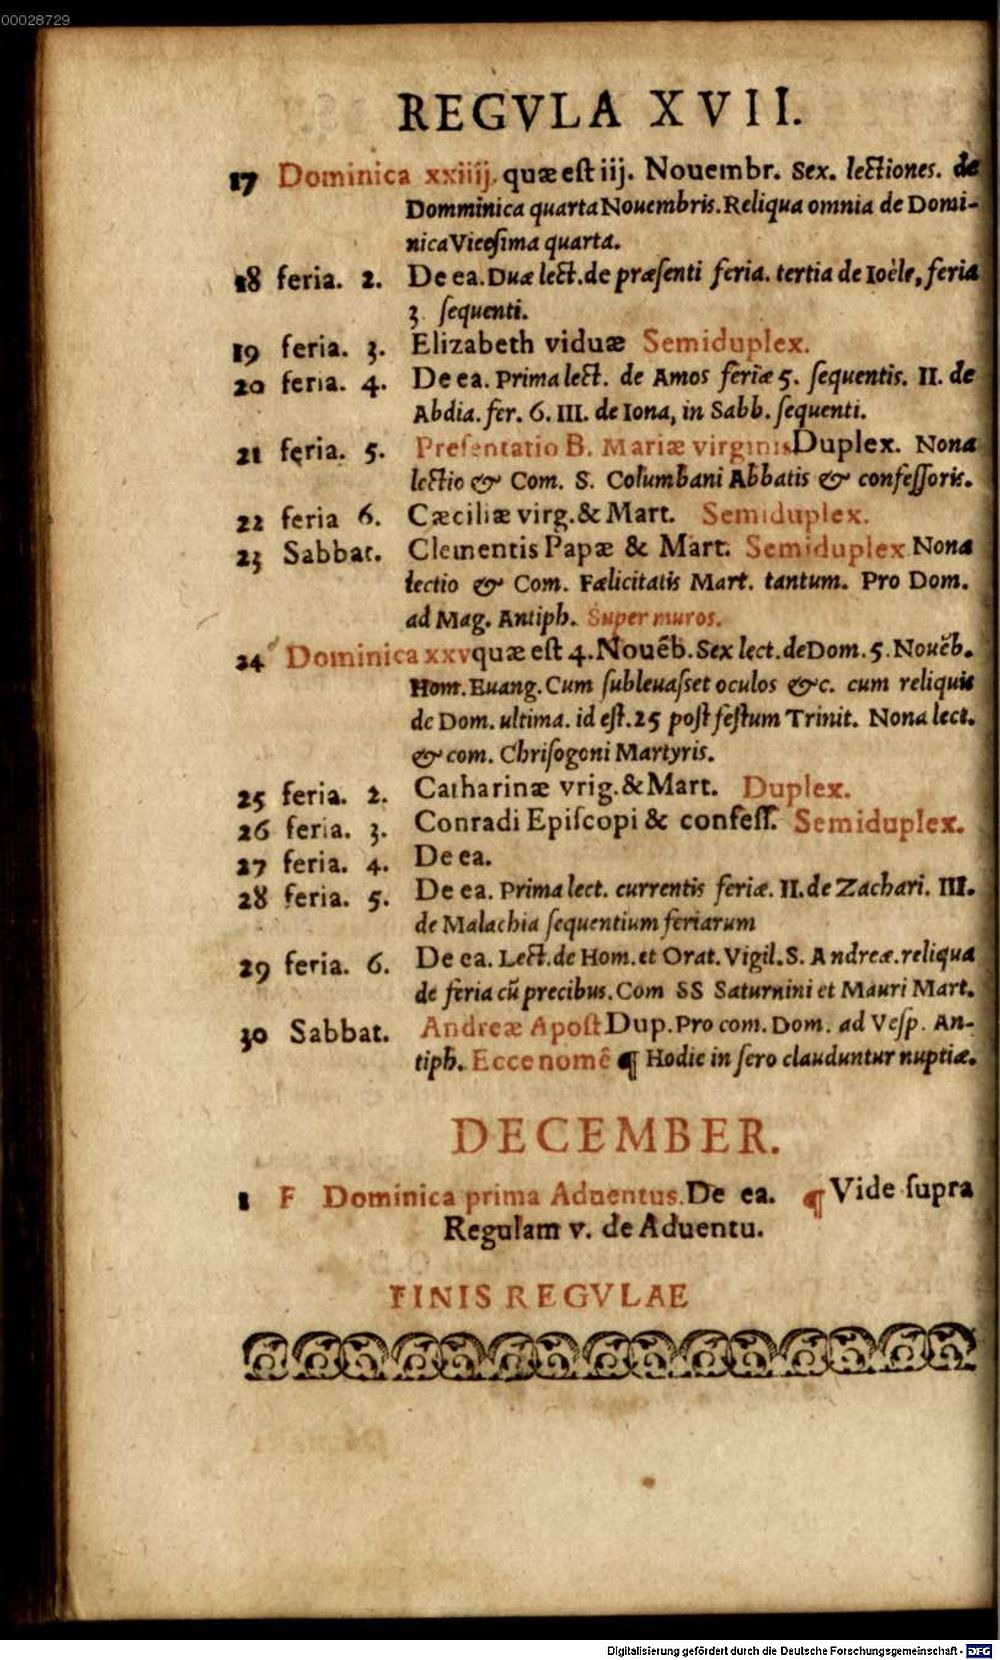 00028729
REGVLA XVII.
17 Dominica xxiiij. quæ eſt iij. Nouembr. Sex. lectiones. de
Domminica quarta Nouembris. Reliqua omnia de Domi-
nica Viceſima quarta.
18 feria. 2. De ea. Duæ lect. de præſenti feria. tertia de Ioële, feria
3 ſequenti.
19 feria. 3. Elizabeth viduæ Semiduplex.
20 feria. 4. De ea. Prima lect. de Amos feriæ 5. ſequentis. II. de
Abdia. fer. 6. III. de Iona, in Sabb. ſequenti.
21 feria. 5. Preſentatio B. Mariæ virginis Duplex. Nona
lectio & Com. S. Columbani Abbatis & confeſſoris.
22 feria 6. Cæciliæ virg. & Mart. Semiduplex.
23 Sabbat. Clementis Papæ & Mart. Semiduplex Nona
lectio & Com. Fælicitatis Mart. tantum. Pro Dom.
ad Mag. Antiph. Super muros.
24 Dominica xxv quæ eſt 4. Nouẽb. Sex lect. de Dom. 5. Nouẽb.
Hom. Euang. Cum ſubleuaſset oculos &c. cum reliquis
de Dom. ultima. id eſt. 25 poſt feſtum Trinit. Nona lect.
& com. Chriſogoni Martyris.
25 feria. 2. Catharinæ vrig. & Mart. Duplex.
26 feria. 3. Conradi Epiſcopi & confeſſ. Semiduplex.
27 feria. 4. De ea.
28 feria. 5. De ea. Prima lect. currentis feriæ. II. de Zachari. III.
de Malachia ſequentium feriarum
29 feria. 6. De ea. Lect. de Hom. et Orat. Vigil. S. Andreæ. reliqua
de feria cũ precibus. Com SS Saturnini et Mauri Mart.
30 Sabbat. Andreæ Apoſt Dup. Pro com. Dom. ad Veſp. An-
tiph. Ecce nomẽ ¶ Hodie in ſero clauduntur nuptiæ.
DECEMBER.
1 F Dominica prima Aduentus. De ea. ¶ Vide ſupra
Regulam v. de Aduentu.
FINIS REGVLAE
Digitalisierung gefördert durch die Deutsche Forschungsgemeinschaft - DFG